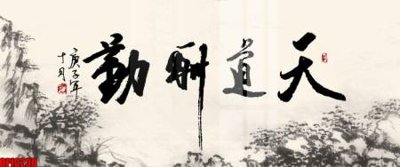 天道酬勤
庚子年
十月